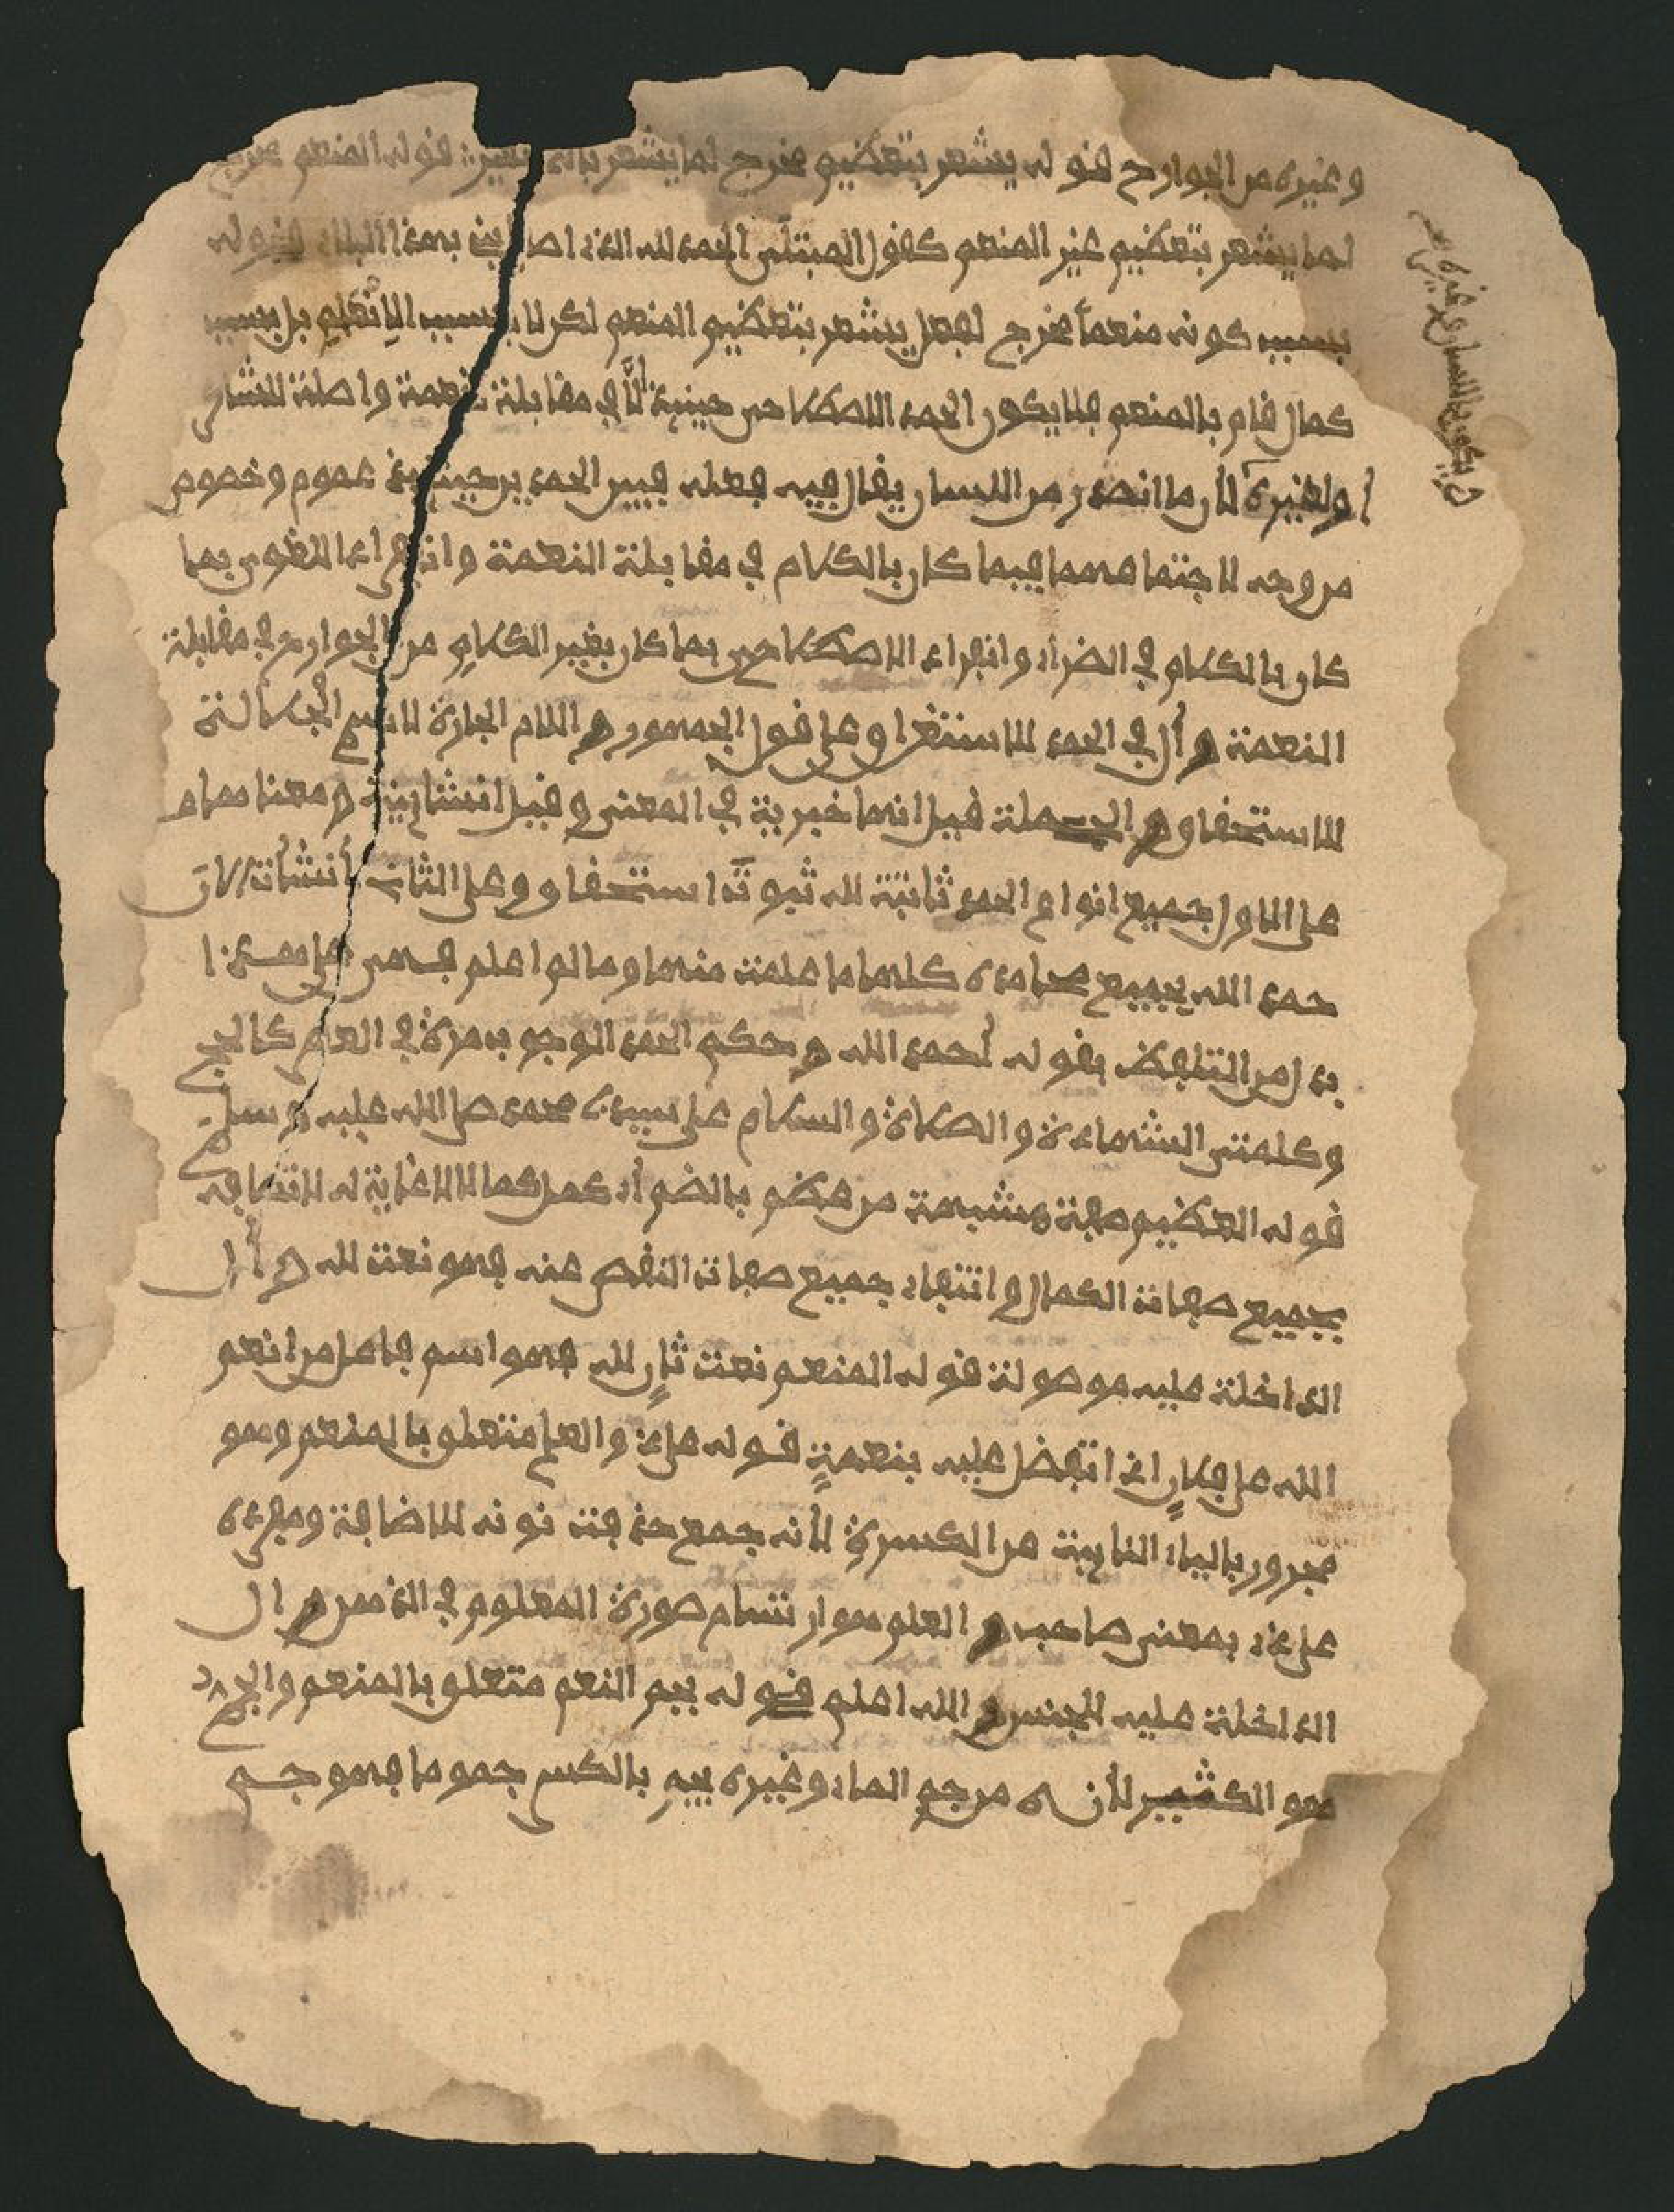 وغيره من الجوارح قوله يشعر بتعظيم مخرج لما يشعر قوله المنعم مخرج
لما يشعر بتعظيم غير المنعم كقول المبتلى الحمد لله الذي بهذا البلاء قوله
بسبب كونه منعماً مخرج لفعل يشعر بتعظيم المنعم لكن لا بسبب الإنعام بل بسبب
كمال قام بالمنعم فلا يكون الحمد الاصطلاحي حينئذ إلّا في مقابلة نعمة واصلة للشاكر
أو لغيره لأن ما انصدر من اللسان يقال فيه فعله فبين الحمدين حينئذ عموم وخصوص
من وجه لاجتماعهما فيما كان بالكلام في مقابلة النعمة وانفراد اللغوي بما
كان بالكلام في الضراء وانفراد الاصطلاحي بما كان بغير الكلام من الجوارح في مقابلة
النعمة و أل في الحمد للاستغراق على قول الجمهور و اللام الجارة لاسم الجلالة
للاستحقاق و الجملة قيل إنها خبرية في المعنى و قيل انشائية و معناها
على الأول جميع انواع الحمد ثابتة لله ثبوت استحقاق و على الثاني أنشأت الآن
حمد الله بجميع محامده كلها ما علمت منها وما لم اعلم فهي على هذا
بدل من التلفظ بقوله أحمد الله و حكم الحمد الوجوب مرة في العمر كالحج
وكلمتي الشهادة و الصلاة و السلام على سيدي محمد صلى الله عليه و سلم
قوله العظيم صفة مشبهة من عظم بالضم أي كمل كمالا لا غاية له لاتصافه
بجميع صفات الكمال و انتفاء جميع صفات النقص عنه فهو نعت لله و أل
الداخلة عليه موصولة قوله المنعم نعت ثانٍ لله فهو اسم فاعل من انعم
الله على فلانٍ اذا تفضل عليه بنعمةٍ قوله على ذوالعلم متعلق بالمنعم وهو
مجرور بالياء النايبة عن الكسرة لأنه جمع حذفت نونه للاضافة ومفرده
على ذي بمعنى صاحب و العلم هو ارتسام صورة المعلوم في الذهن و ال
الداخلة عليه للجنس و الله اعلم قوله بجم النعم متعلق بالمنعم والجم
هو الكثير لأنه من جم الماء وغيره يجم بالكسر جموما فهو جم